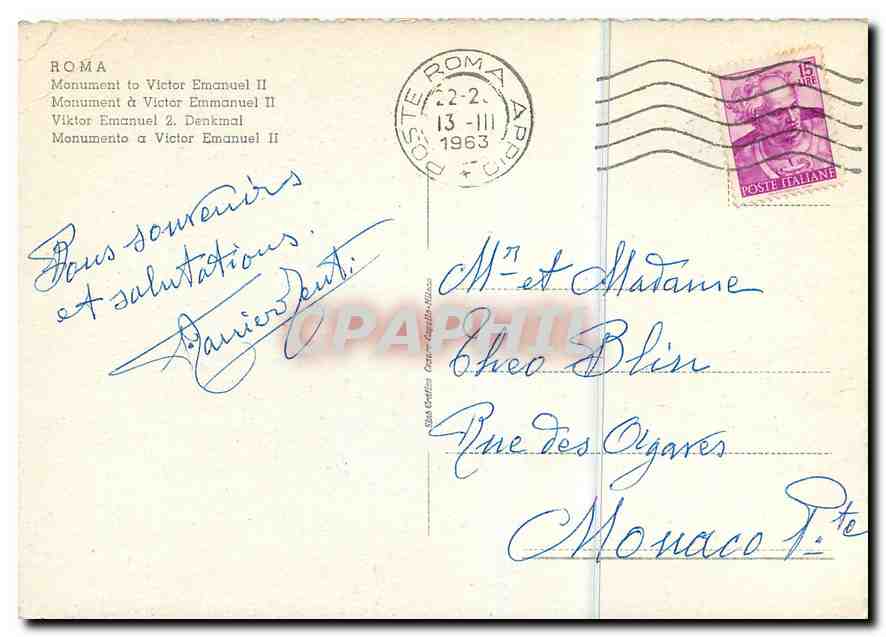 ROMA
Monument to Victor Emanuel II
Monument à Victor Emmanuel II
Viktor Emanuel 2. Denkmal
Monumento a Victor Emanuel II
POSTE ROMA APPIO
22-2
13 -III
1963
15
LIRE
POSTE ITALIANE
Bons souvenirs
et salutations.
Mr et Madame
Theo Blin
Rue des Agaves
Monaco Pte
Stab Grafico Cesare Capello-Milano
CPAPHIL